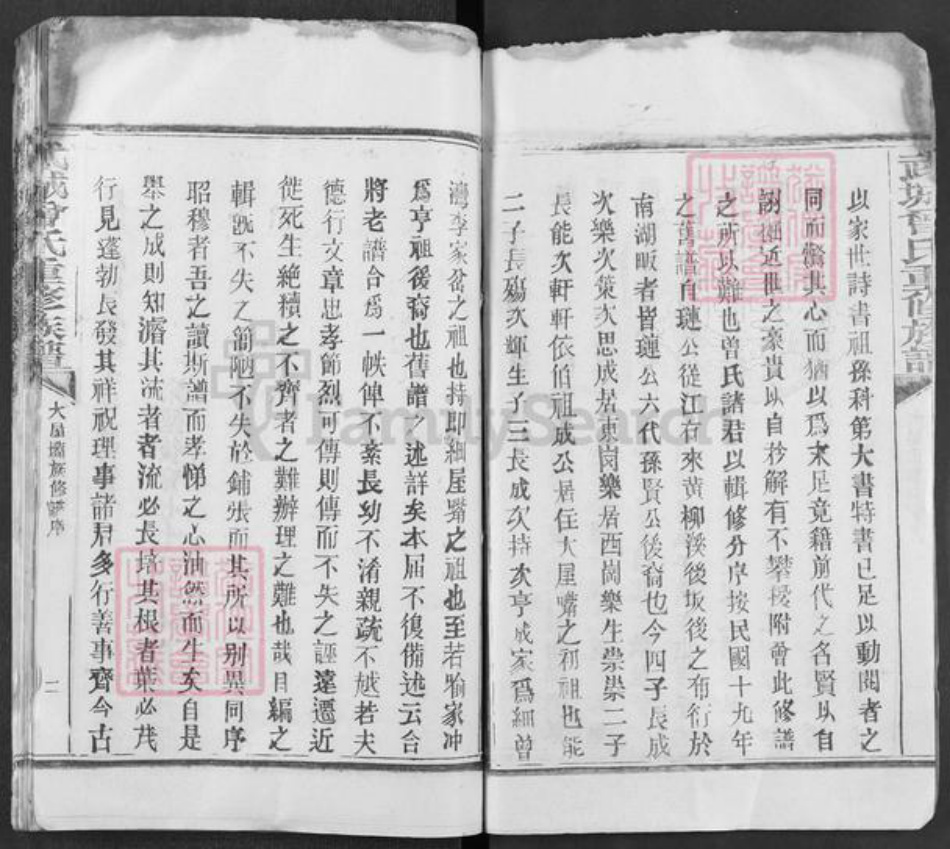 武城曾氏重修族譜
以家世詩書祖孫科第大書特書已足以動閱者之
同而驚其心而猶以爲未足竟籍前代之名賢以自
詡挪近世之豪貴以自矜解有不攀援附會此修譜
之所以難也曾氏諸君以輯修分序按民國十九年
之舊譜自璉公從江右來黃柳溪後坂後之布衍於
南湖畈者皆璉公六代孫賢公後裔也今四子長成
次樂次策次思成居東岗樂居西崗樂生崇崇二子
長能次軒軒依伯祖成公居住大屋嘴之初祖也能
二子長殤次輝生子三長成次持次亨成家爲細曾
灣李家岔之祖也持即細屋嘴之祖也至若喻家冲
爲亨祖後裔也舊譜之述詳矣本届不復備述云合
將老譜合爲一帙俾不紊長幼不淆親疏不越若夫
德行文章忠孝節烈可傳則傳而不失之誣遠遷近
徙死生絶續之不齊者之難辦理之難也哉目編之
輯既不失之簡陋不失於鋪張而其所以别異同序
昭穆者吾之讀斯譜而孝悌之心油然而生矣自是
舉之成則知濬其流者者流必長培其根者葉必茂
行見蓬勃長發其祥祝理事諸君多行善事齊今古
武城曾氏重修族譜
大屋嘴族修譜序
二
FamilySearch